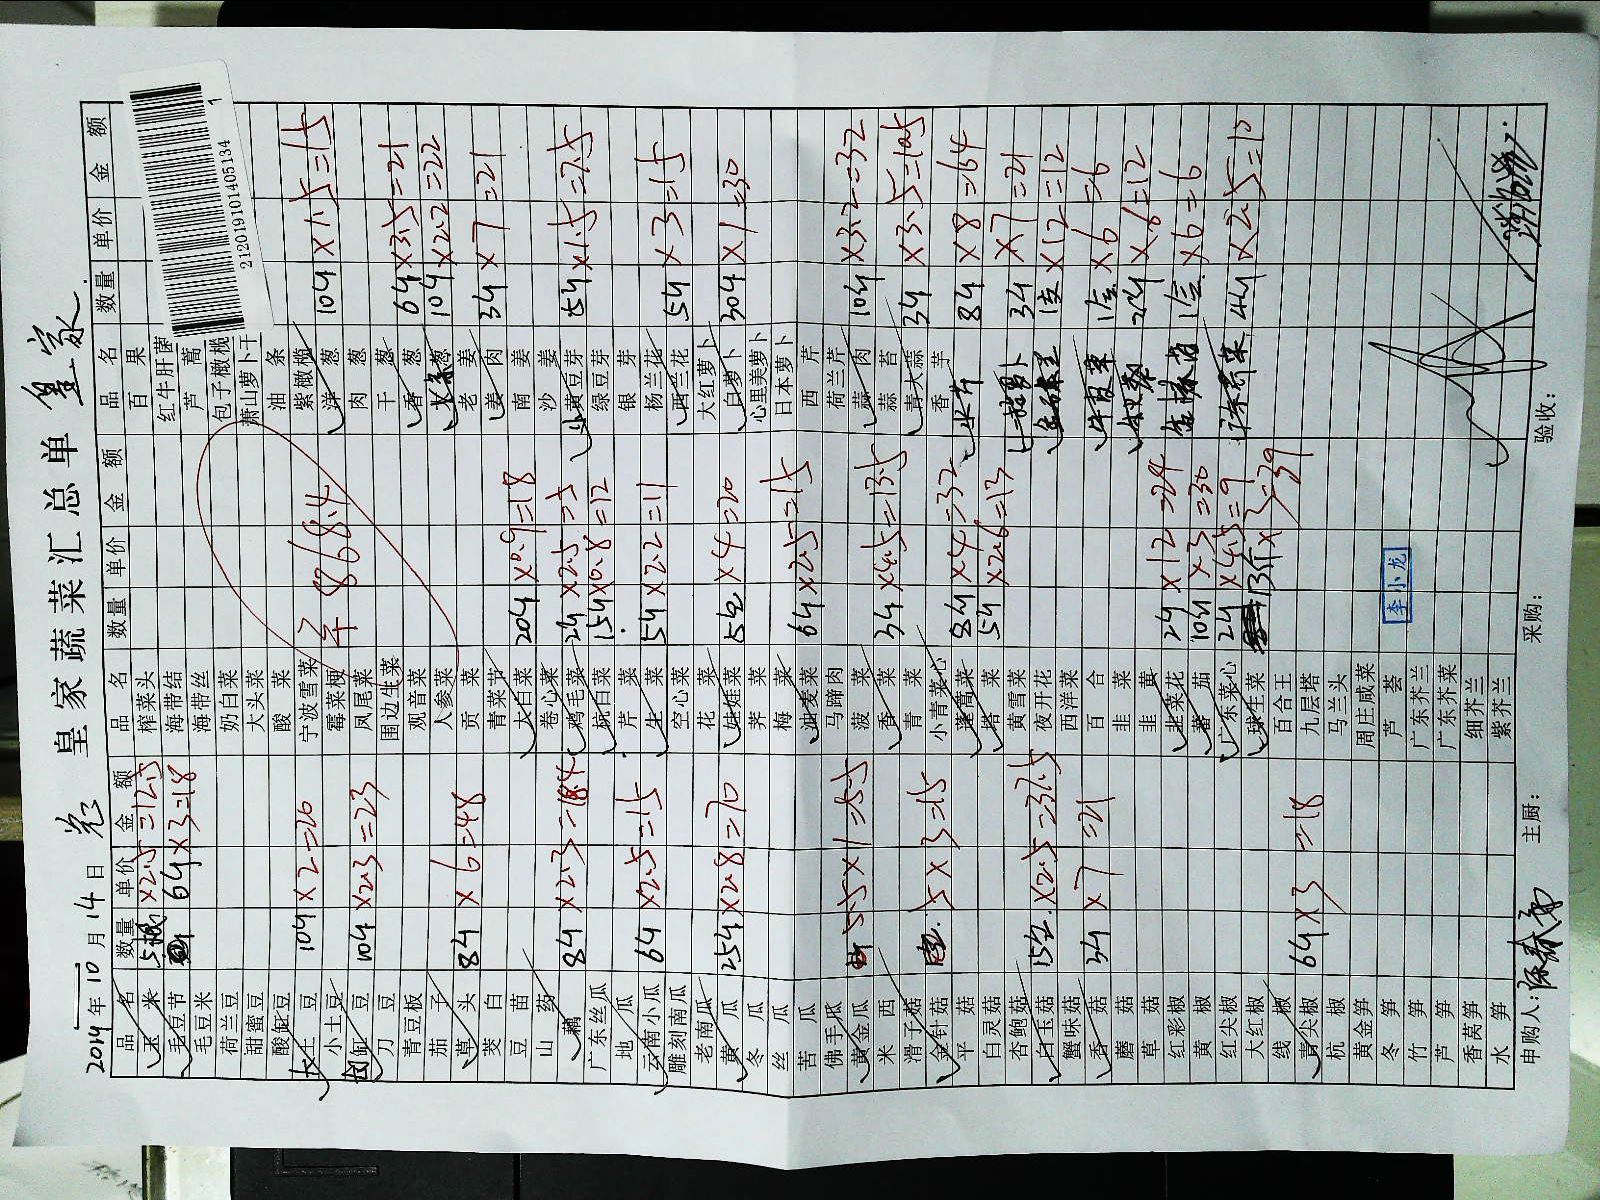 2014年10月14日 党 皇家蔬菜汇总单 皇家
品名 数量 单价 金额 品名 数量 单价 金额 品名 数量 单价 金额
玉米 5 ×2.5=12.5 榨菜头 百果
毛豆节 6斤×3=18 海带结 红牛肝菌
毛豆米 海带丝 芦蒿
荷兰豆 奶白菜 包子橄榄
甜蜜豆 大头菜 萧山萝卜干
酸豇豆 酸菜 油条
大土豆 10斤×2=20 宁波雪菜 紫橄榄
小土豆 霉菜梗 洋葱 10斤×1.5=15
豇豆 10斤×2.3=23 凤尾菜 肉葱
刀豆 围边生菜 干葱
青豆板 观音菜 香葱 6斤×3.5=21
茄子 人参菜 京葱 10斤×2.2=22
草头 8斤×6=48 贡菜 老姜
茭白 青菜 姜肉 3斤×7=21
豆苗 大白菜 20斤×0.9=18 南姜
山药 卷心菜 沙姜
藕 8斤×2.3=18.4 鸡毛菜 2斤×2.5=5 黄豆芽 5斤×1.5=7.5
广东丝瓜 杭白菜 15斤×0.8=12 绿豆芽
地瓜 芹菜 银芽
云南小瓜 6斤×2.5=15 生菜 5斤×2.2=11 杨兰花
雕刻南瓜 空心菜 西兰花 5斤×3=15
老南瓜 花菜 大红萝卜
黄瓜 25斤×2.8=70 娃娃菜 5包×4=20 白萝卜 30斤×1=30
冬瓜 荠菜 心里美萝卜
丝瓜 梅菜 日本萝卜
苦瓜 油麦菜 6斤×2.5=15 西芹
佛手瓜 马蹄肉 荷兰芹
黄金瓜 5.5×1=5.5 菠菜 蒜肉 10斤×3.2=32
米西 香菜 3斤×4.5=13.5 蒜苔
滑子菇 青菜 青大蒜 3斤×3.5=10.5
金针菇 5×3=15 小青菜心 香芋
平菇 蓬蒿菜 8斤×4=32 8斤×8=64
白灵菇 塔菜 5斤×2.6=13
杏鲍菇 黄雪菜 3斤×7=21
白玉菇 15包×2.5=37.5 夜开花 ×12=12
蟹味菇 西洋菜
香菇 3斤×7=21 百合 1盒×6=6
蘑菇 韭菜 2斤×6=12
草菇 韭黄
红彩椒 韭菜花 2斤×12=24 1盒×6=6
黄椒 蕃茄 10斤×3=30
红尖椒 广东菜心 2斤×4.5=9 4斤×2.5=10
大红椒 球生菜 13个×3=39
线椒 百合王
青尖椒 6斤×3=18 九层塔
杭椒 马兰头
黄金笋 周庄咸菜
冬笋 芦荟
竹笋 广东芥兰
芦笋 广东芥菜
香莴笋 细芥兰
水笋 紫芥兰
申购人: 主厨: 采购: 验收:
868.4
李小龙
2120191014051341